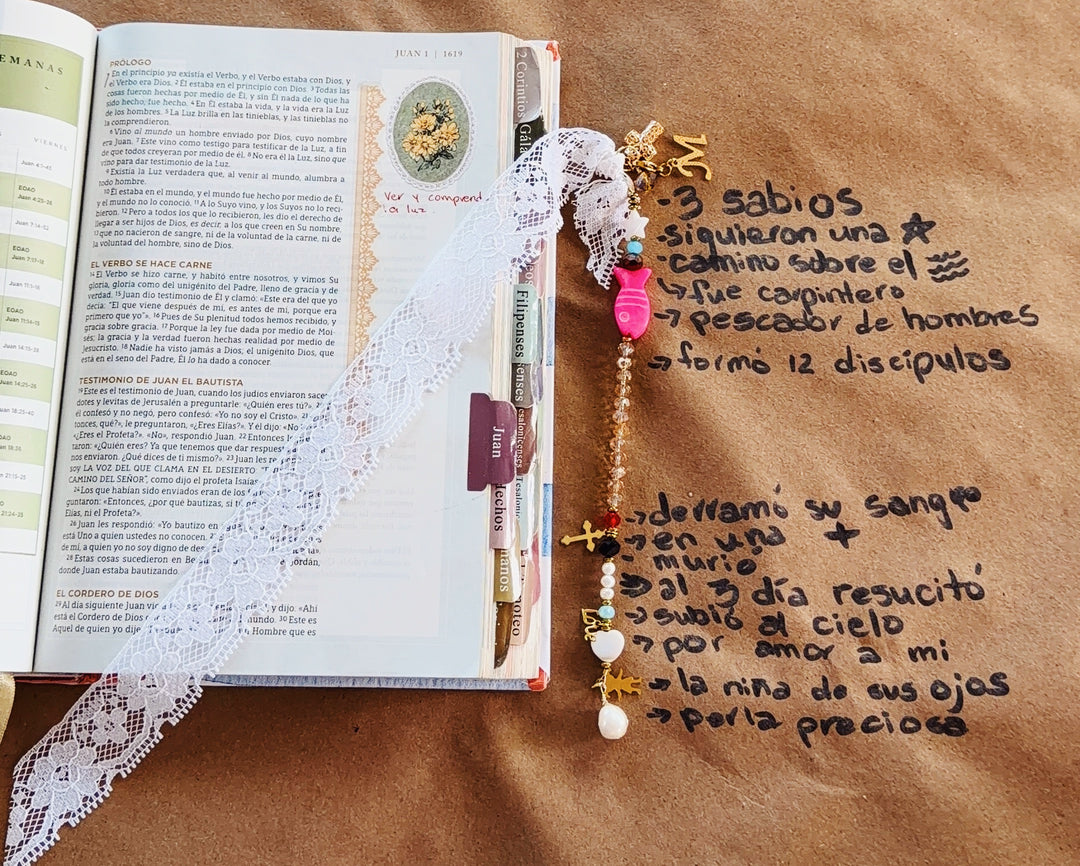 EMANAS
VIERNES
Juan 4:1-45
EDAD
Juan 4:25-26
Juan 7:14-52
EDAD
Juan 7:17-18
Juan 11:1-16
EDAD
Juan 11:14-15
Juan 14:15-26
EDAD
Juan 14:25-26
Juan 18:25-40
EDAD
Juan 21:15-25
EDAD
JUAN 1 | 1619
PRÓLOGO
1 En el principio ya existía el Verbo, y el Verbo estaba con Dios, y
el Verbo era Dios. 2 Él estaba en el principio con Dios. 3 Todas las
cosas fueron hechas por medio de Él, y sin Él nada de lo que ha
sido hecho, fue hecho. 4 En Él estaba la vida, y la vida era la Luz
de los hombres. 5 La Luz brilla en las tinieblas, y las tinieblas no
la comprendieron.
6 Vino al mundo un hombre enviado por Dios, cuyo nombre
era Juan. 7 Este vino como testigo para testificar de la Luz, a fin
de que todos creyeran por medio de él. 8 No era él la Luz, sino que
vino para dar testimonio de la Luz.
9 Existía la Luz verdadera que, al venir al mundo, alumbra a
todo hombre.
10 Él estaba en el mundo, y el mundo fue hecho por medio de Él,
y el mundo no lo conoció. 11 A lo Suyo vino, y los Suyos no lo reci-
bieron. 12 Pero a todos los que lo recibieron, les dio el derecho de
llegar a ser hijos de Dios, es decir, a los que creen en Su nombre,
13 que no nacieron de sangre, ni de la voluntad de la carne, ni de
la voluntad del hombre, sino de Dios.
Ver y comprend
la luz.
EL VERBO SE HACE CARNE
14 El Verbo se hizo carne, y habitó entre nosotros, y vimos Su
gloria, gloria como del unigénito del Padre, lleno de gracia y de
verdad. 15 Juan dio testimonio de Él y clamó: «Este era del que yo
decía: "El que viene después de mí, es antes de mí, porque era
primero que yo"». 16 Pues de Su plenitud todos hemos recibido, y
gracia sobre gracia. 17 Porque la ley fue dada por medio de Moi-
sés; la gracia y la verdad fueron hechas realidad por medio de
Jesucristo. 18 Nadie ha visto jamás a Dios; el unigénito Dios, que
está en el seno del Padre, Él lo ha dado a conocer.
TESTIMONIO DE JUAN EL BAUTISTA
19 Este es el testimonio de Juan, cuando los judíos enviaron sacer
dotes y levitas de Jerusalén a preguntarle: «¿Quién eres tú?».
él confesó y no negó, pero confesó: «Yo no soy el Cristo». 21
tonces, qué?», le preguntaron, «¿Eres Elías?». Y él dijo: «No
«¿Eres el Profeta?». «No», respondió Juan. 22 Entonces
taron: «¿Quién eres? Ya que tenemos que dar respues
nos enviaron. ¿Qué dices de ti mismo?». 23 Juan les re
soy LA VOZ DEL QUE CLAMA EN EL DESIERTO:
CAMINO DEL SEÑOR", como dijo el profeta Isaías
24 Los que habían sido enviados eran de los
guntaron: «Entonces, ¿por qué bautizas, si
Elías, ni el Profeta?».
26 Juan les respondió: «Yo bautizo en
está Uno a quien ustedes no conocen.
de mí, a quien yo no soy digno de des
28 Estas cosas sucedieron en Be
donde Juan estaba bautizando.
ordán,
EL CORDERO DE DIOS
29 Al día siguiente Juan vio
y dijo: «Ahí
está el Cordero de Dios
mundo. 30 Este es
Aquel de quien yo dije
Hombre que es
2 Corintios
Gála
Filipenses
Tesalonicenses
Juan
Hechos
Romanos
Timoteo
M
- 3 sabios
- siguieron una ☆
- camino sobre el
↳ fue carpintero
→ pescador de hombres
→ formó 12 discípulos
→ derramó su sangre
→ en una +
- murió
→ al 3 día resucitó
→ subió al cielo
→ por amor a mi
→ la niña de sus ojos
→ perla preciosa